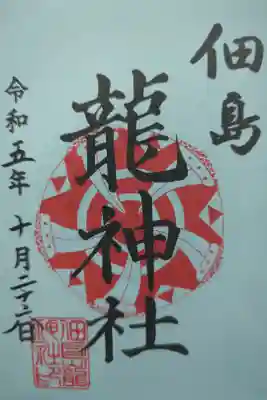 佃島
龍神社
令和五年 十月二十二日
佃島龍
神社印